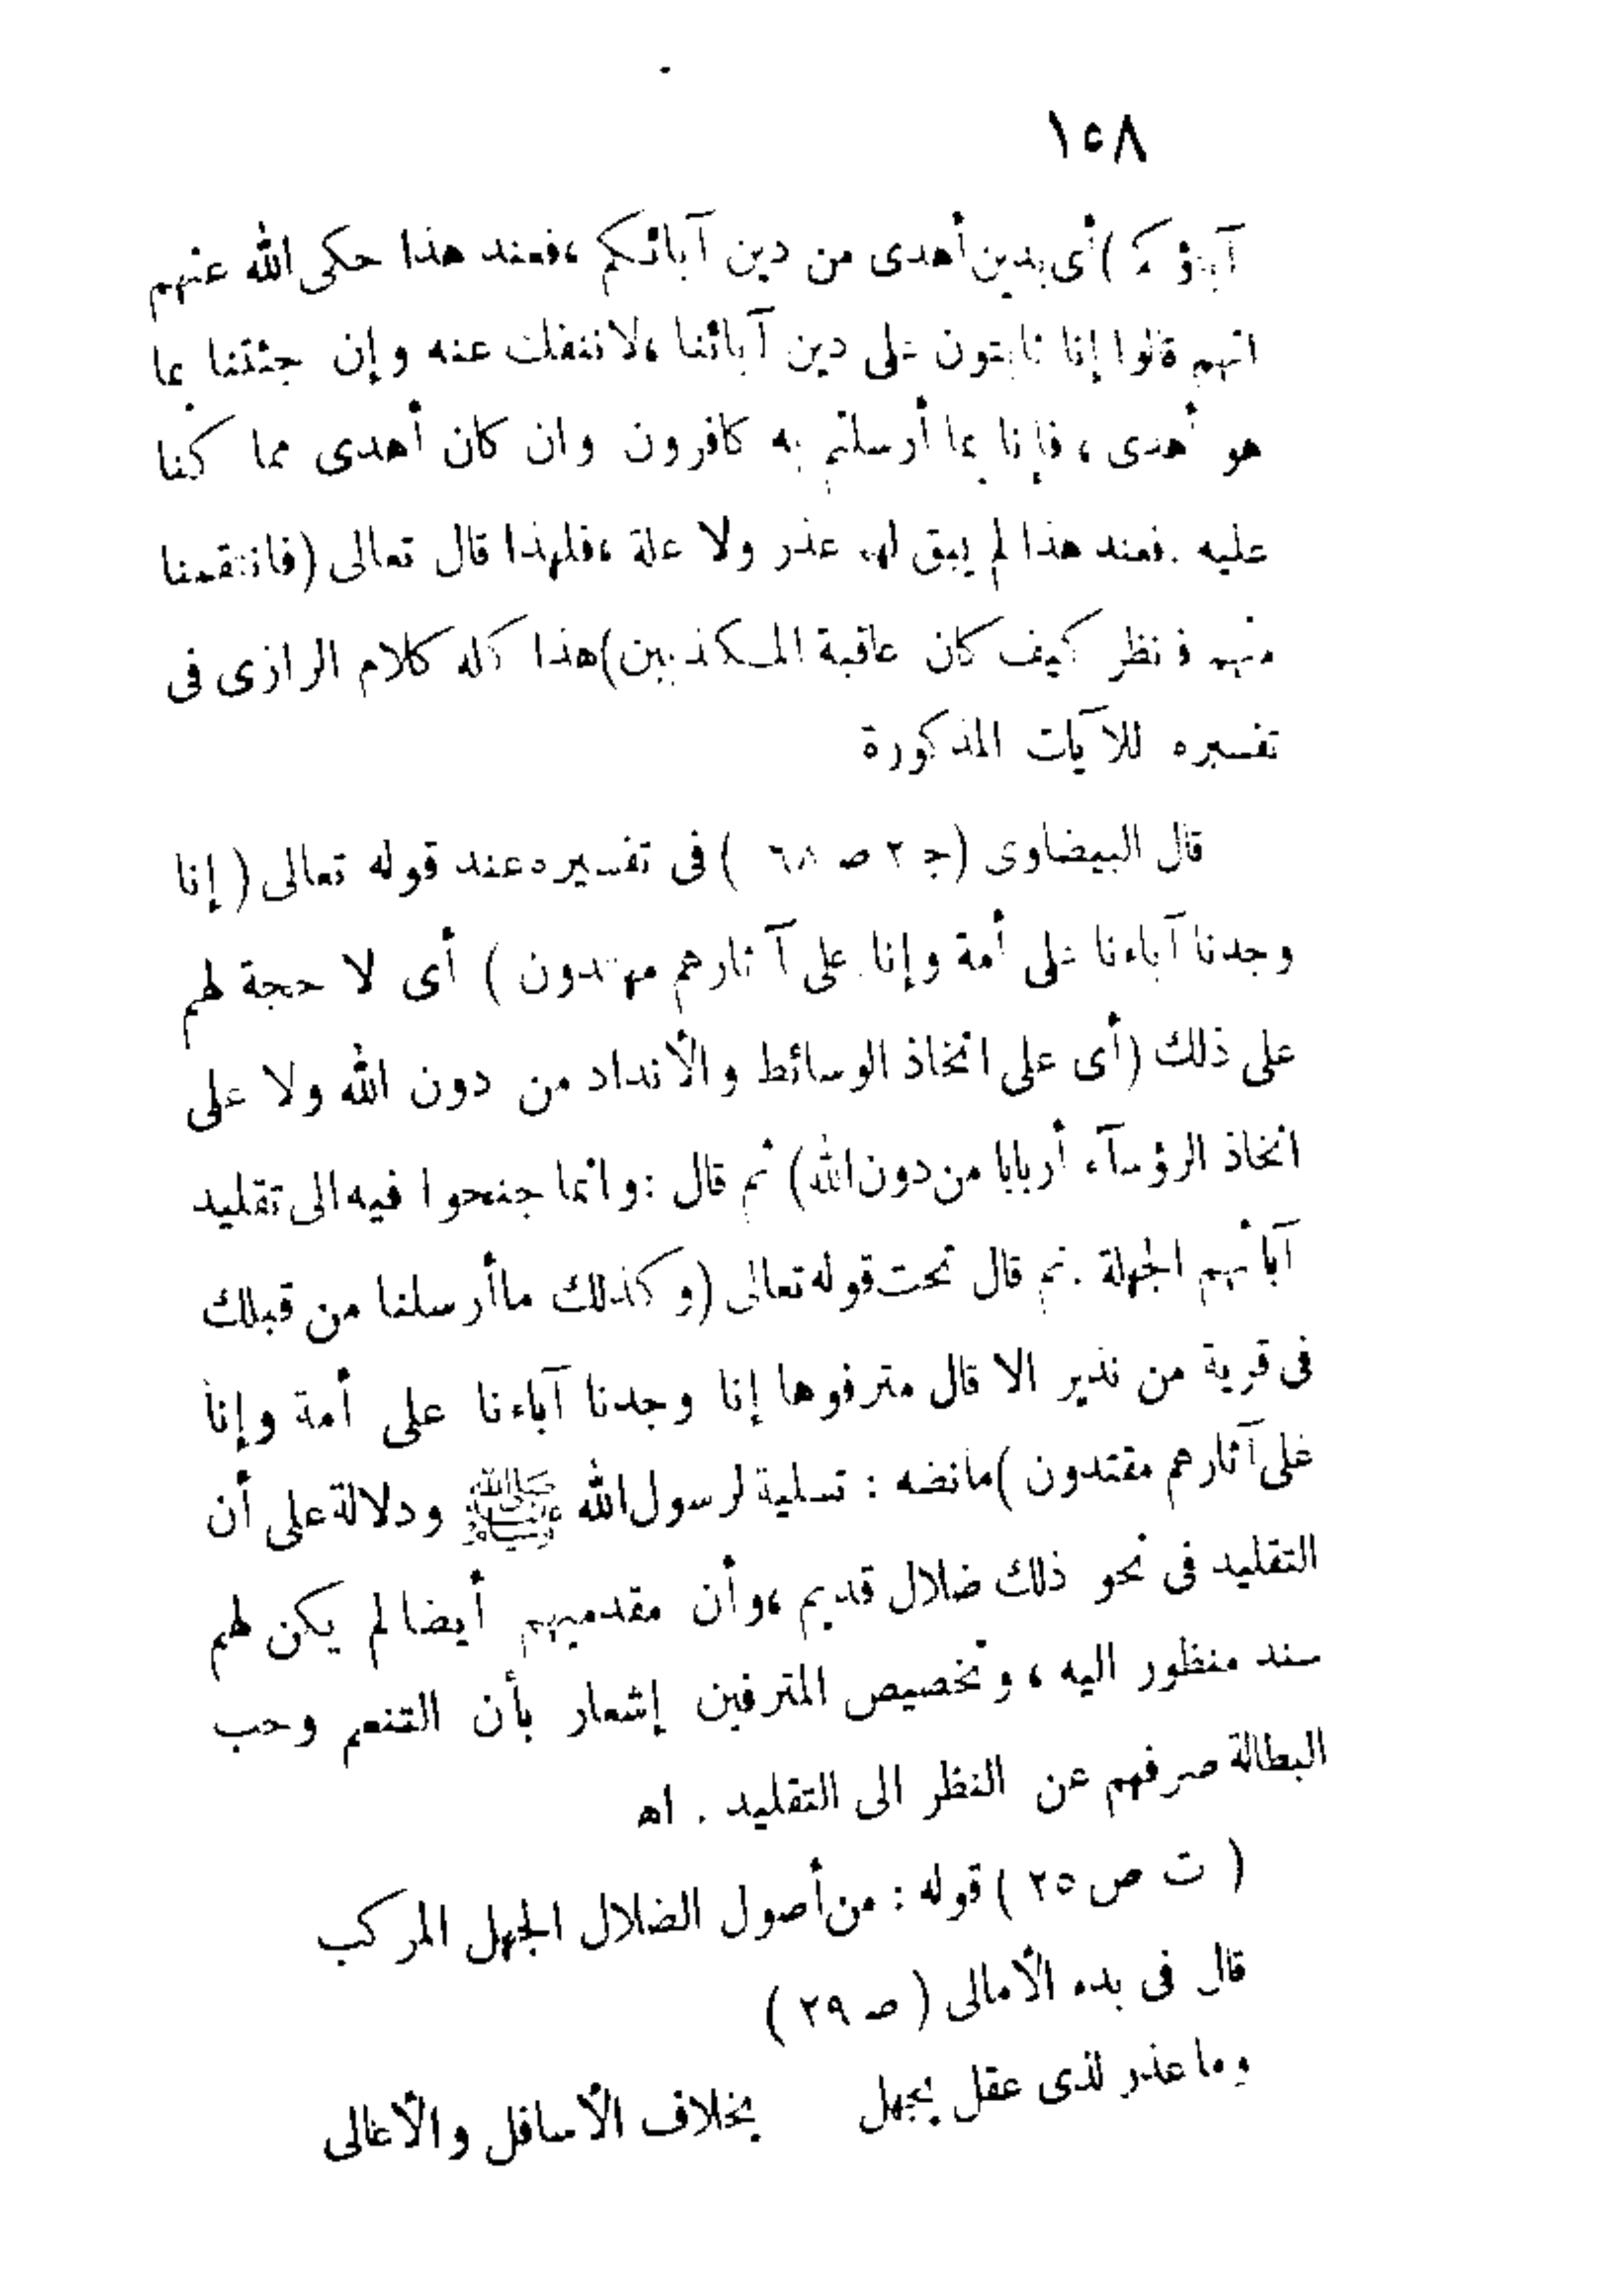 ١٥٨
آباؤكم ) أى بدين أهدى من دين آبائكم ،فعند هذا حكى الله عنهم
انهم قالوا إنا ثابتون على دين آبائنا ،لاننفك عنه وإن جئتنا بما
هو أهدى ، فإنا بما أرسلتم به كافرون وان كان أهدى مما كنا
عليه .فعند هذا لم يبق لهم عذر ولا علة ،فلهذا قال تعالى (فانتقمنا
منهم فانظر كيف كان عاقبة المكذبين)هذا كله كلام الرازى فى
تفسيره للآيات المذكورة
قال البيضاوى (جـ ٢ صـ ٦٨ ) فى تفسيره عند قوله تعالى ( إنا
وجدنا آباءنا على أمة وإنا على آثارهم مهتدون ) أى لا حجة لهم
على ذلك (أى على اتخاذ الوسائط والأنداد من دون الله ولا على
اتخاذ الرؤسآء أربابا من دون الله) ثم قال :وانما جنحوا فيه الى تقليد
آبائهم الجهلة .ثم قال تحت قوله تعالى (وكذلك ماأرسلنا من قبلك
فى قرية من نذير الا قال مترفوها إنا وجدنا آباءنا على أمة وإنا
على آثارهم مقتدون )مانصه : تسلية لرسول الله ﷺ ودلالة على أن
التقليد فى نحو ذلك ضلال قديم ،وأن مقدميهم أيضا لم يكن لهم
سند منظور اليه ، وتخصيص المترفين إشعار بأن التنعم وحب
البطالة صرفهم عن النظر الى التقليد . اهـ
( ت ص ٢٥ ) قوله : من أصول الضلال الجهل المركب
قال فى بدء الأمالى ( صـ ٢٩ )
وما عذر لذى عقل بجهل بخلاف الأسافل والأعالى